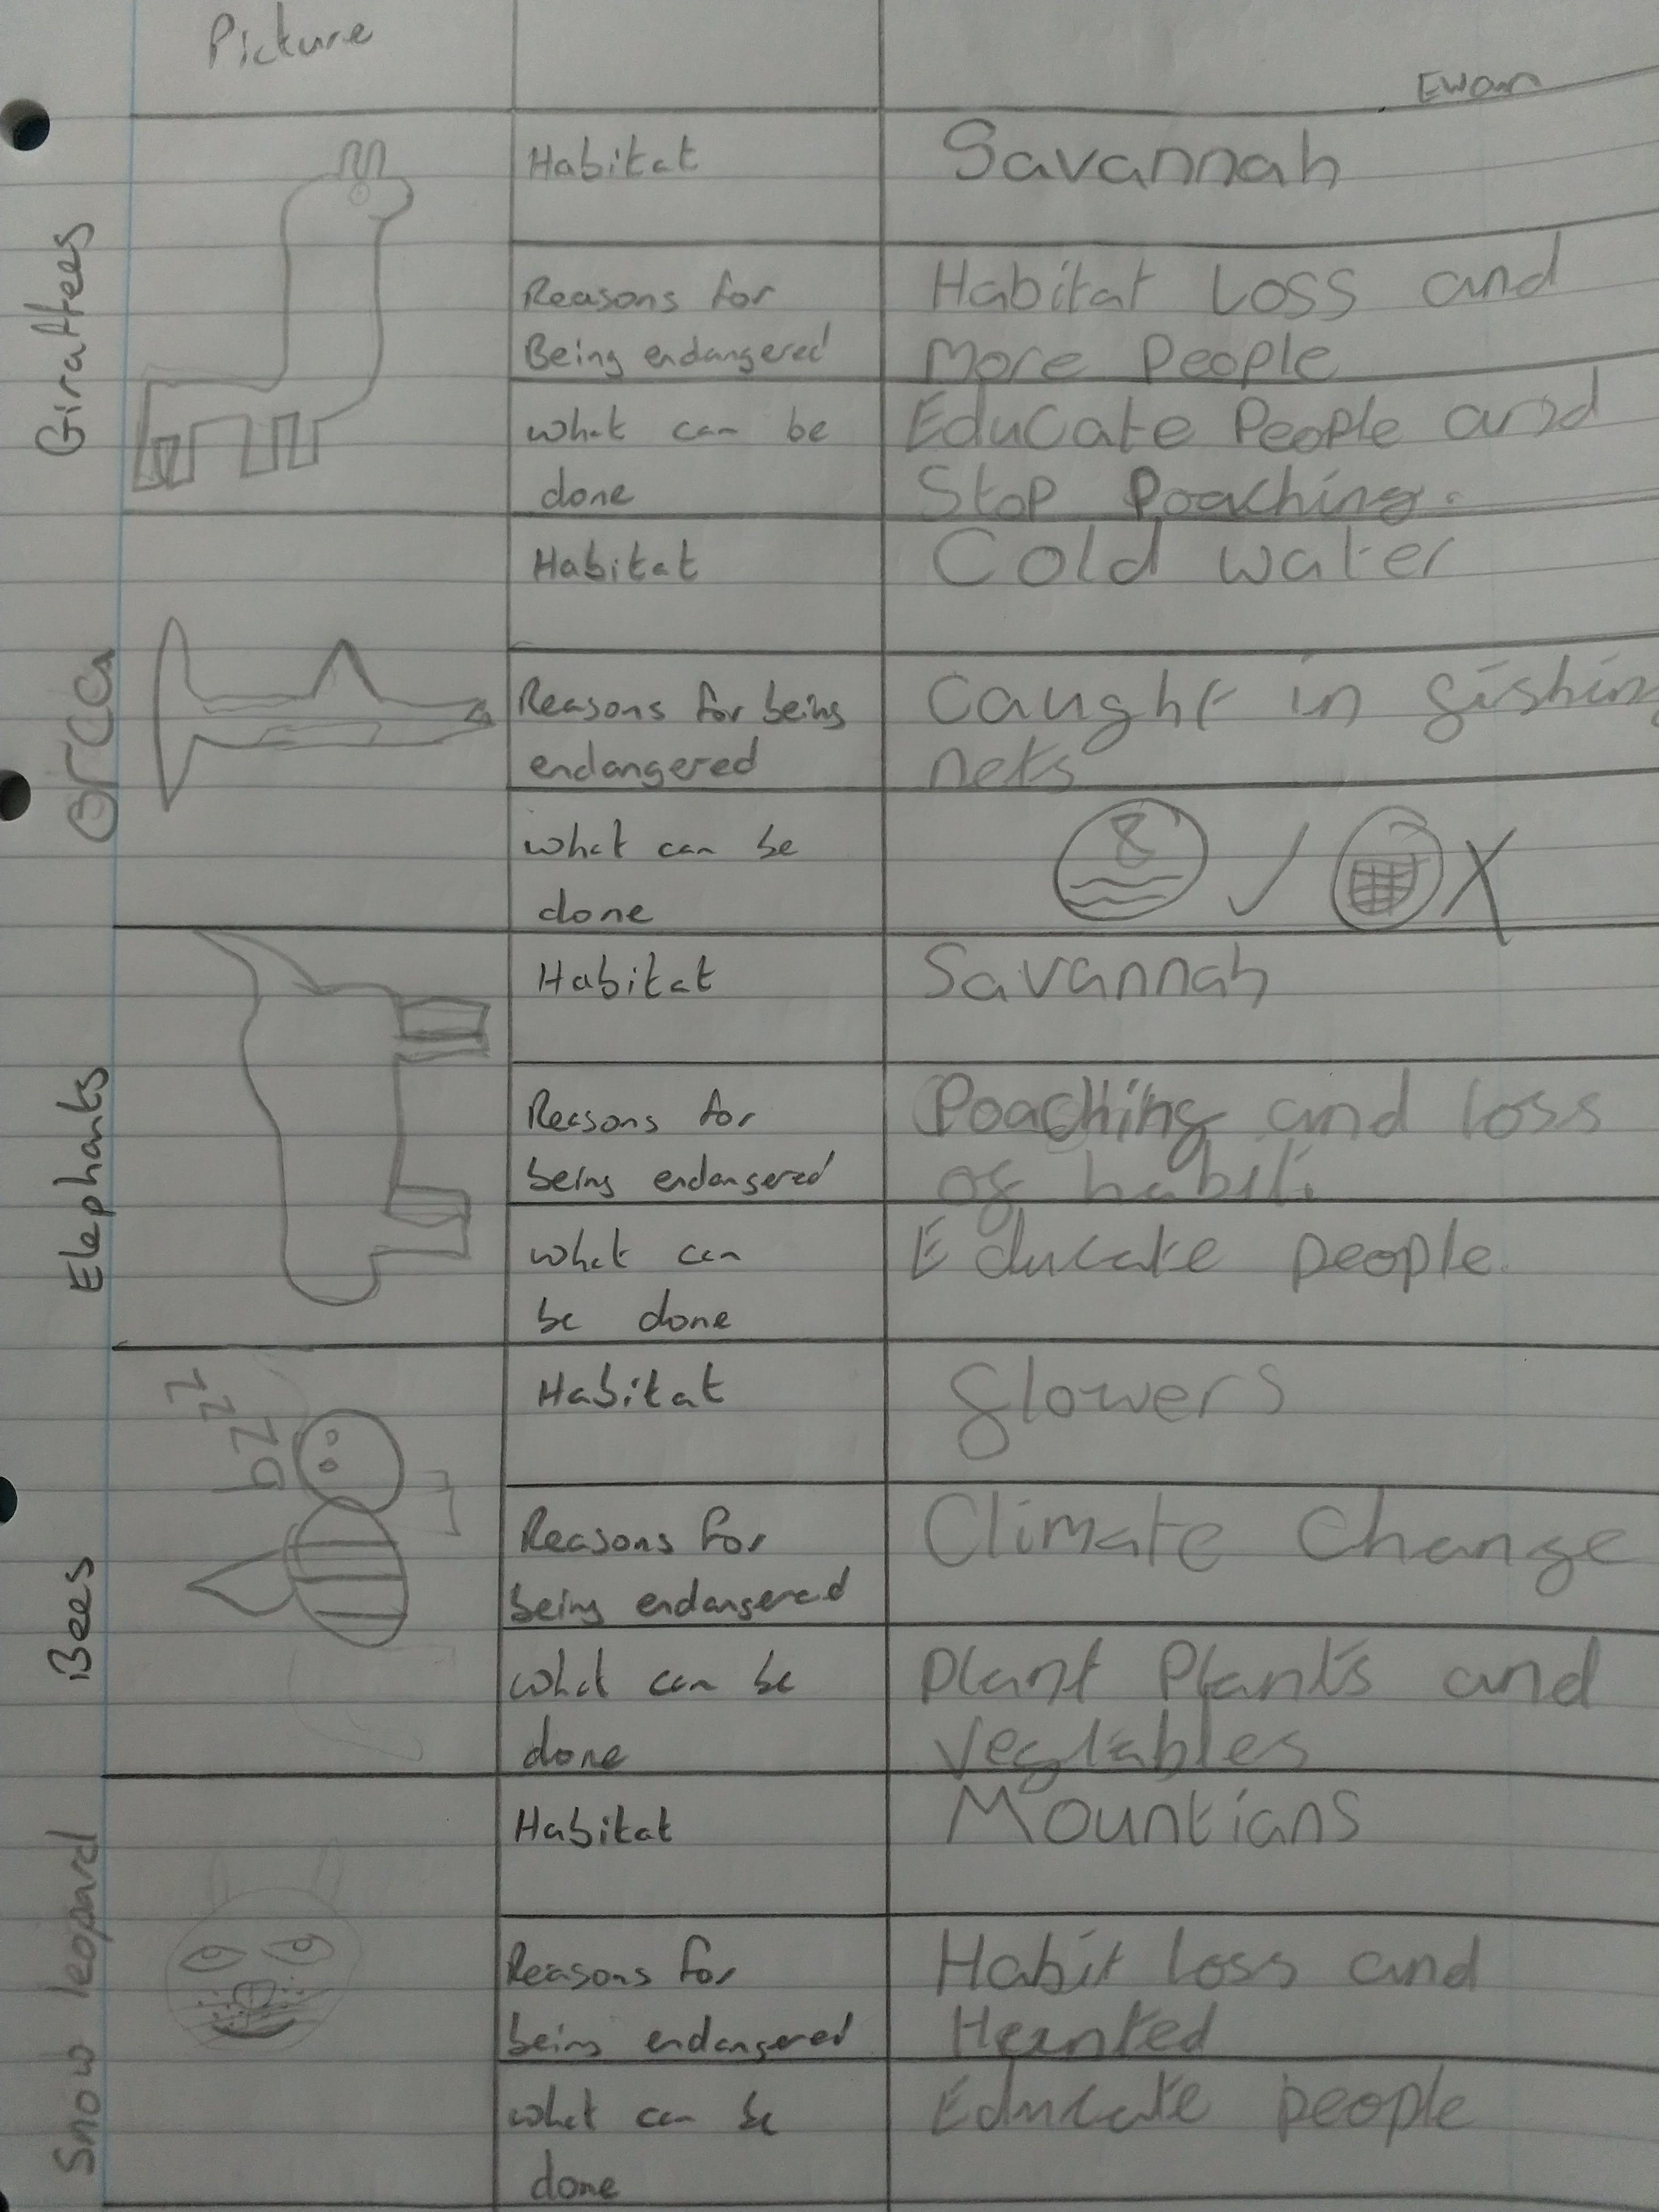 Picture
Ewan
Giraffees
Habitat
Savannah
Reasons for
Being endangered
Habitat Loss and
More People
what can be
done
Educate People and
Stop Poaching.
Orca
Habitat
Cold water
Reasons for being
endangered
Caught in fishing
nets
what can be
done
Elephants
Habitat
Savannah
Reasons for
being endangered
Poaching and loss
of habit.
what can
be done
Educate people.
Bees
bzzzz
Habitat
flowers
Reasons for
being endangered
Climate Change
what can be
done
Plant Plants and
vegtables
Snow leopard
Habitat
Mountians
Reasons for
being endangered
Habit loss and
Hunted
what can be
done
Educate people